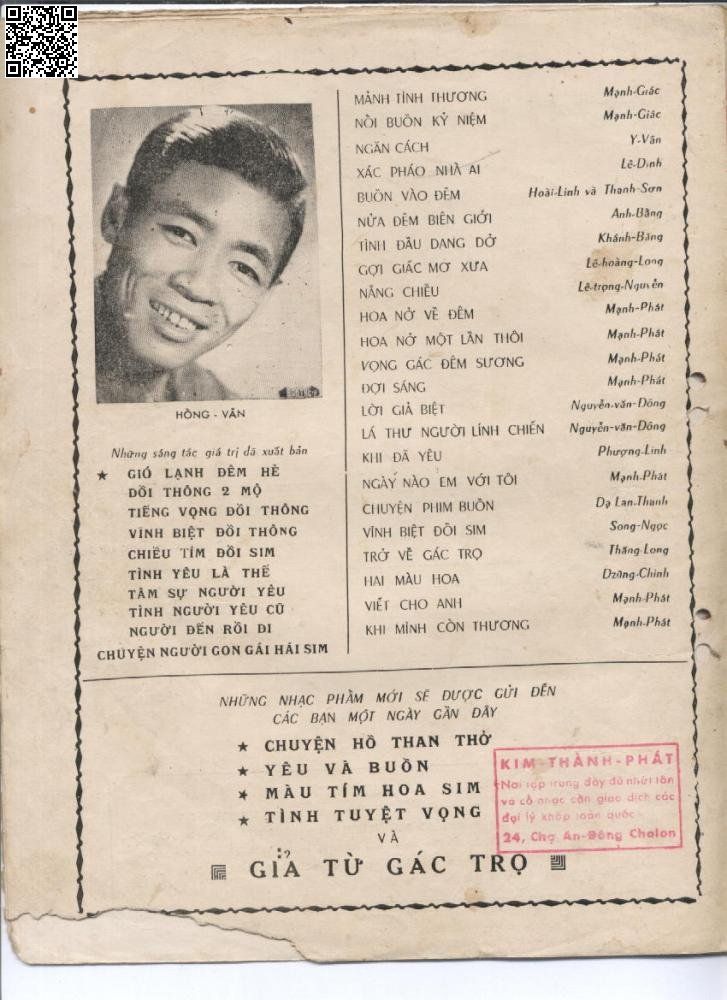 HỒNG - VÂN
Những sáng tác giá trị đã xuất bản
★ GIÓ LẠNH ĐÊM HÈ
ĐỒI THÔNG 2 MỘ
TIẾNG VỌNG ĐỒI THÔNG
VĨNH BIỆT ĐỒI THÔNG
CHIỀU TÍM ĐỒI SIM
TÌNH YÊU LÀ THẾ
TÂM SỰ NGƯỜI YÊU
TÌNH NGƯỜI YÊU CŨ
NGƯỜI ĐẾN RỒI ĐI
CHUYỆN NGƯỜI CON GÁI HÁI SIM
MẢNH TÌNH THƯƠNG Mạnh-Giác
NỖI BUỒN KỶ NIỆM Mạnh-Giác
NGĂN CÁCH Y-Vân
XÁC PHÁO NHÀ AI Lê-Dinh
BUỒN VÀO ĐÊM Hoài-Linh và Thanh-Sơn
NỬA ĐÊM BIÊN GIỚI Anh-Bằng
TÌNH ĐẦU DANG DỞ Khánh-Băng
GỢI GIẤC MƠ XƯA Lê-hoàng-Long
NẮNG CHIỀU Lê-trọng-Nguyễn
HOA NỞ VỀ ĐÊM Mạnh-Phát
HOA NỞ MỘT LẦN THÔI Mạnh-Phát
VỌNG GÁC ĐÊM SƯƠNG Mạnh-Phát
ĐỢI SÁNG Mạnh-Phát
LỜI GIÃ BIỆT Nguyễn-văn-Đông
LÁ THƯ NGƯỜI LÍNH CHIẾN Nguyễn-văn-Đông
KHI ĐÃ YÊU Phượng-Linh
NGÀY NÀO EM VỚI TÔI Mạnh-Phát
CHUYỆN PHIM BUỒN Dạ-Lan-Thanh
VĨNH BIỆT ĐỒI SIM Song-Ngọc
TRỞ VỀ GÁC TRỌ Thăng-Long
HAI MÀU HOA Dzũng-Chinh
VIẾT CHO ANH Mạnh-Phát
KHI MÌNH CÒN THƯƠNG Mạnh-Phát
NHỮNG NHẠC PHẨM MỚI SẼ ĐƯỢC GỬI ĐẾN
CÁC BẠN MỘT NGÀY GẦN ĐÂY
★ CHUYỆN HỒ THAN THỞ
★ YÊU VÀ BUỒN
★ MÀU TÍM HOA SIM
★ TÌNH TUYỆT VỌNG
VÀ
GIÃ TỪ GÁC TRỌ
KIM THÀNH-PHÁT
Nơi tập trung đầy đủ nhứt tân
và cổ nhạc cần giao dịch các
đại lý khắp toàn quốc
24, Chợ An-Đông Cholon